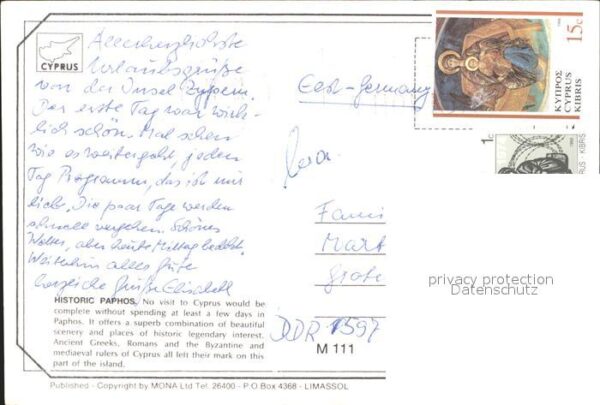 CYPRUS
Allerherzlichste
Urlaubsgrüße
von der Insel Zypern.
Der erste Tag war wirk-
lich schön. Mal sehen
wie es weitergeht, jeden
Tag Programm, das ist mir
liebe. Die paar Tage werden
schnell vergehen. Schönes
Wetter, aber heute Mittag bedeckt.
Weiterhin alles Gute
herzliche Grüße Elisabeth
HISTORIC PAPHOS. No visit to Cyprus would be
complete without spending at least a few days in
Paphos. It offers a superb combination of beautiful
scenery and places of historic legendary interest.
Ancient Greeks, Romans and the Byzantine and
mediaeval rulers of Cyprus all left their mark on this
part of the island.
Published - Copyright by MONA Ltd Tel. 26400 - P.O Box 4368 - LIMASSOL
East-Germany
15c
ΚΥΠΡΟΣ
CYPRUS
KIBRIS
1.
Fami
Mark
DDR 1597
M 111
privacy protection
Datenschutz